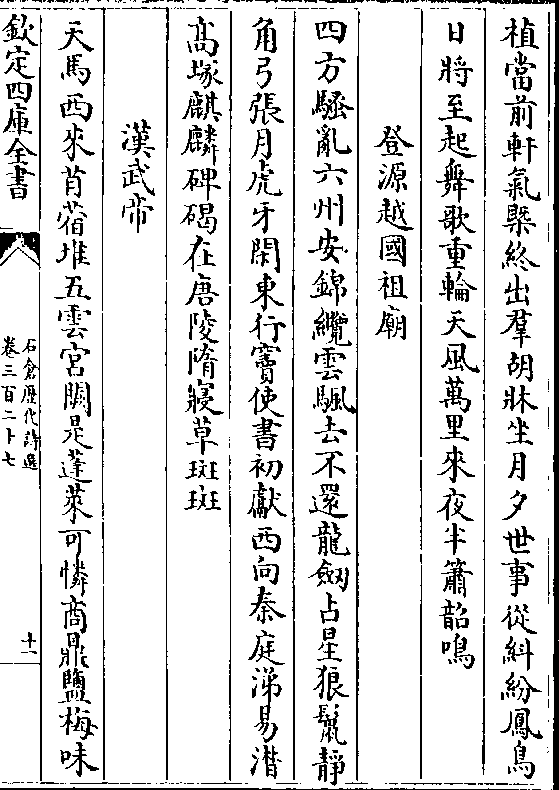 植當前軒氣槩終出羣胡牀坐月夕世事從糾紛鳳鳥
日將至起舞歌重輪天風萬里來夜半簫韶鳴
登源越國祖廟
四方騷亂六州安錦纜雲颿去不還龍劒占星狼鬛靜
角弓張月虎牙閑東行竇使書初獻西向秦庭涕易潸
髙塚麒麟碑碣在唐陵隋寢草斑斑
漢武帝
天馬西來苜蓿堆五雲宮闕是蓬萊可憐商鼎鹽梅味
欽定四庫全書
石倉歴代詩選
卷三百二十七
十一